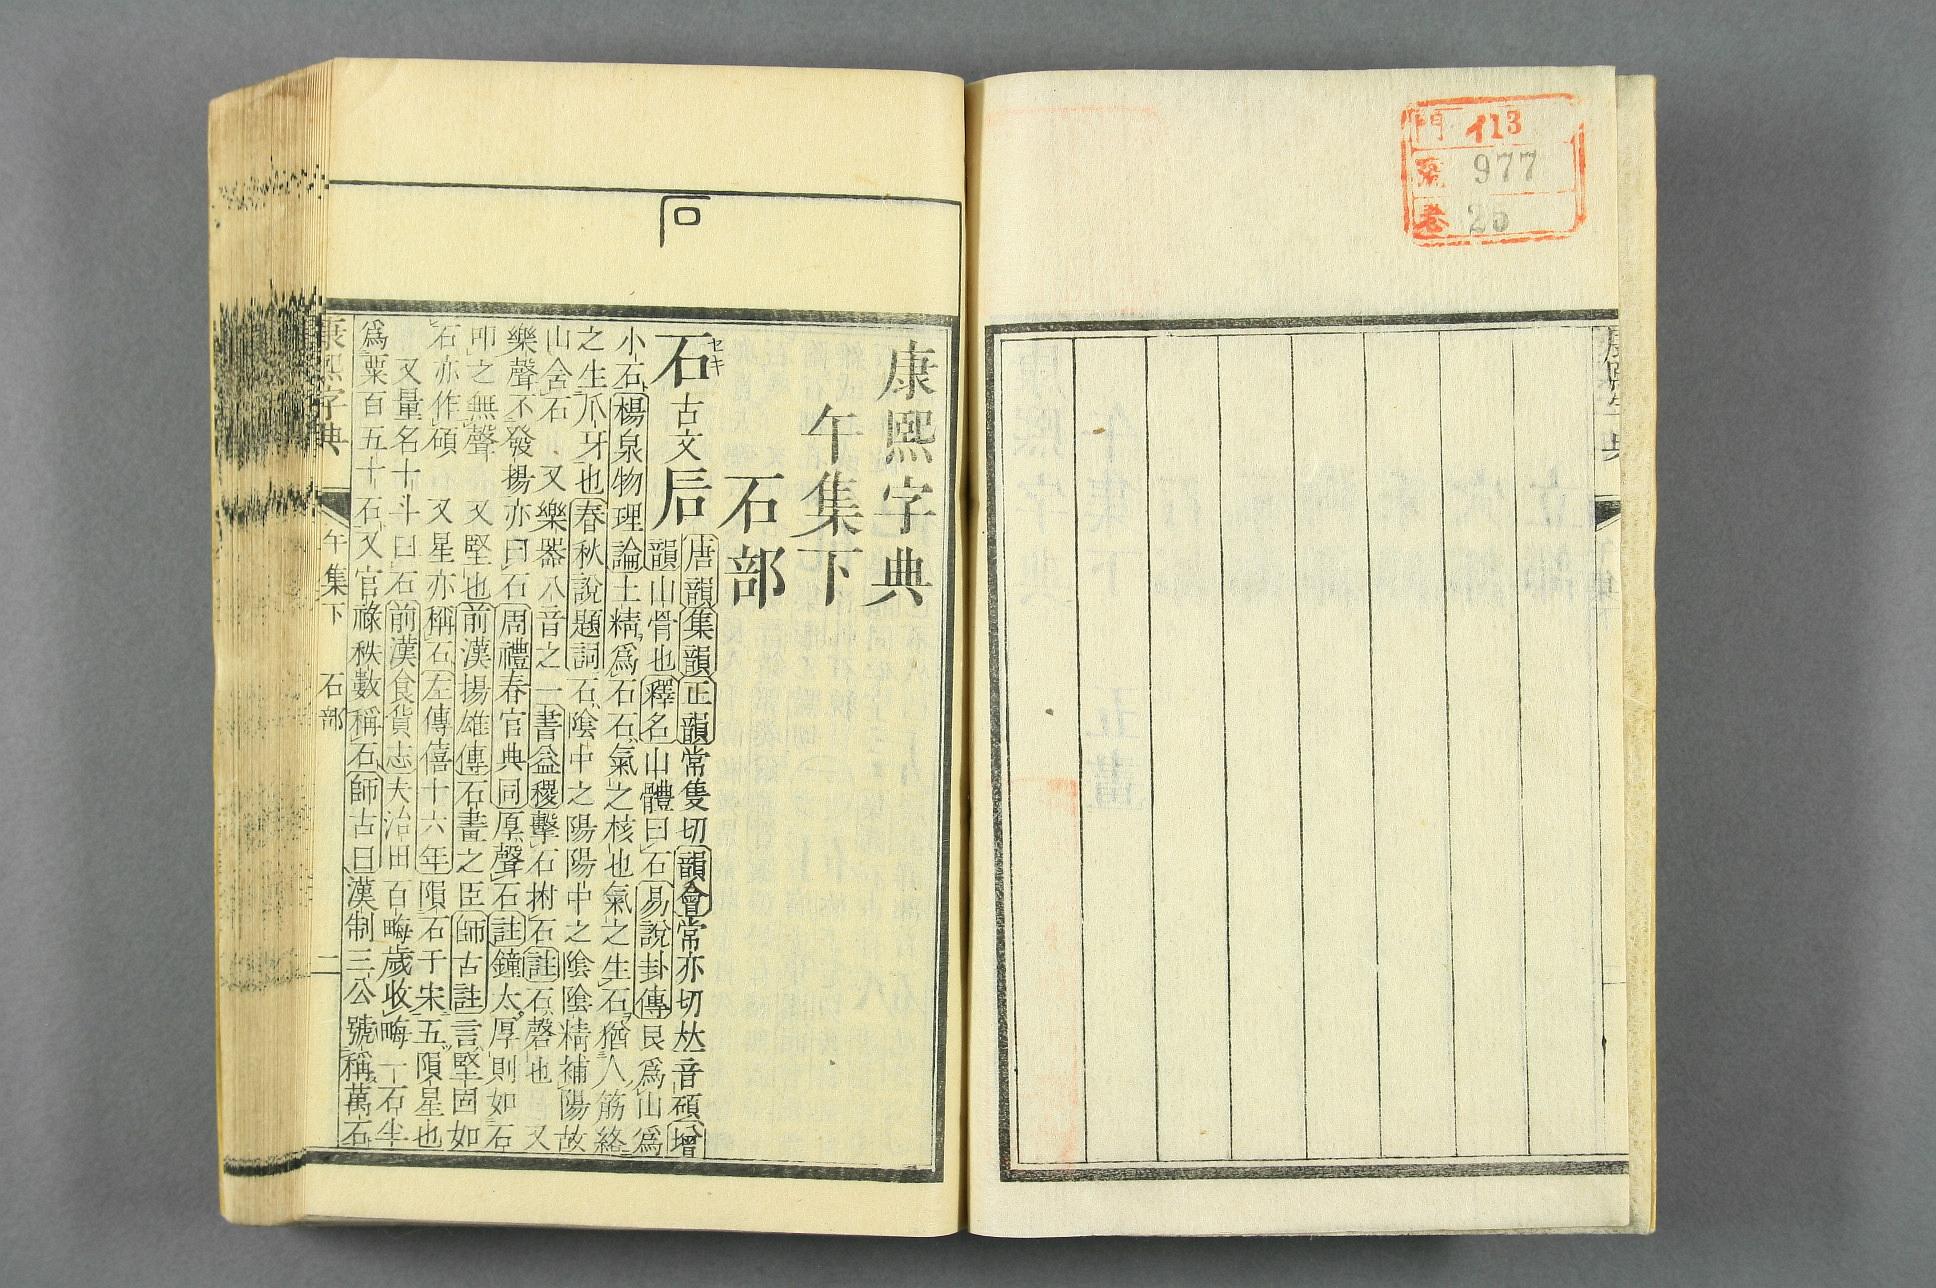 門 イ13
號 977
卷 25
康熙字典
午集下
石部
石 セキ 古文 𥐘 唐韻集韻正韻常隻切韻會常亦切𠀤音碩增
韻山骨也釋名山體曰石易說卦傳艮爲山爲
小石楊泉物理論土精爲石石氣之核也氣之生石猶人筋絡
之生爪牙也春秋說題詞石陰中之陽陽中之陰陰精補陽故
山含石 又樂器八音之一書益稷擊石拊石註石磬也 又
樂聲不發揚亦曰石周禮春官典同厚聲石註鐘太厚則如石
叩之無聲 又堅也前漢揚雄傳石畫之臣師古註言堅固如
石亦作碩 又星亦稱石左傳僖十六年隕石于宋五隕星也
又量名十斗曰石前漢食貨志夫治田百畮歲收畮一石半
爲粟百五十石又官祿秩數稱石師古曰漢制三公號稱萬石
康熙字典 午集下 石部 二